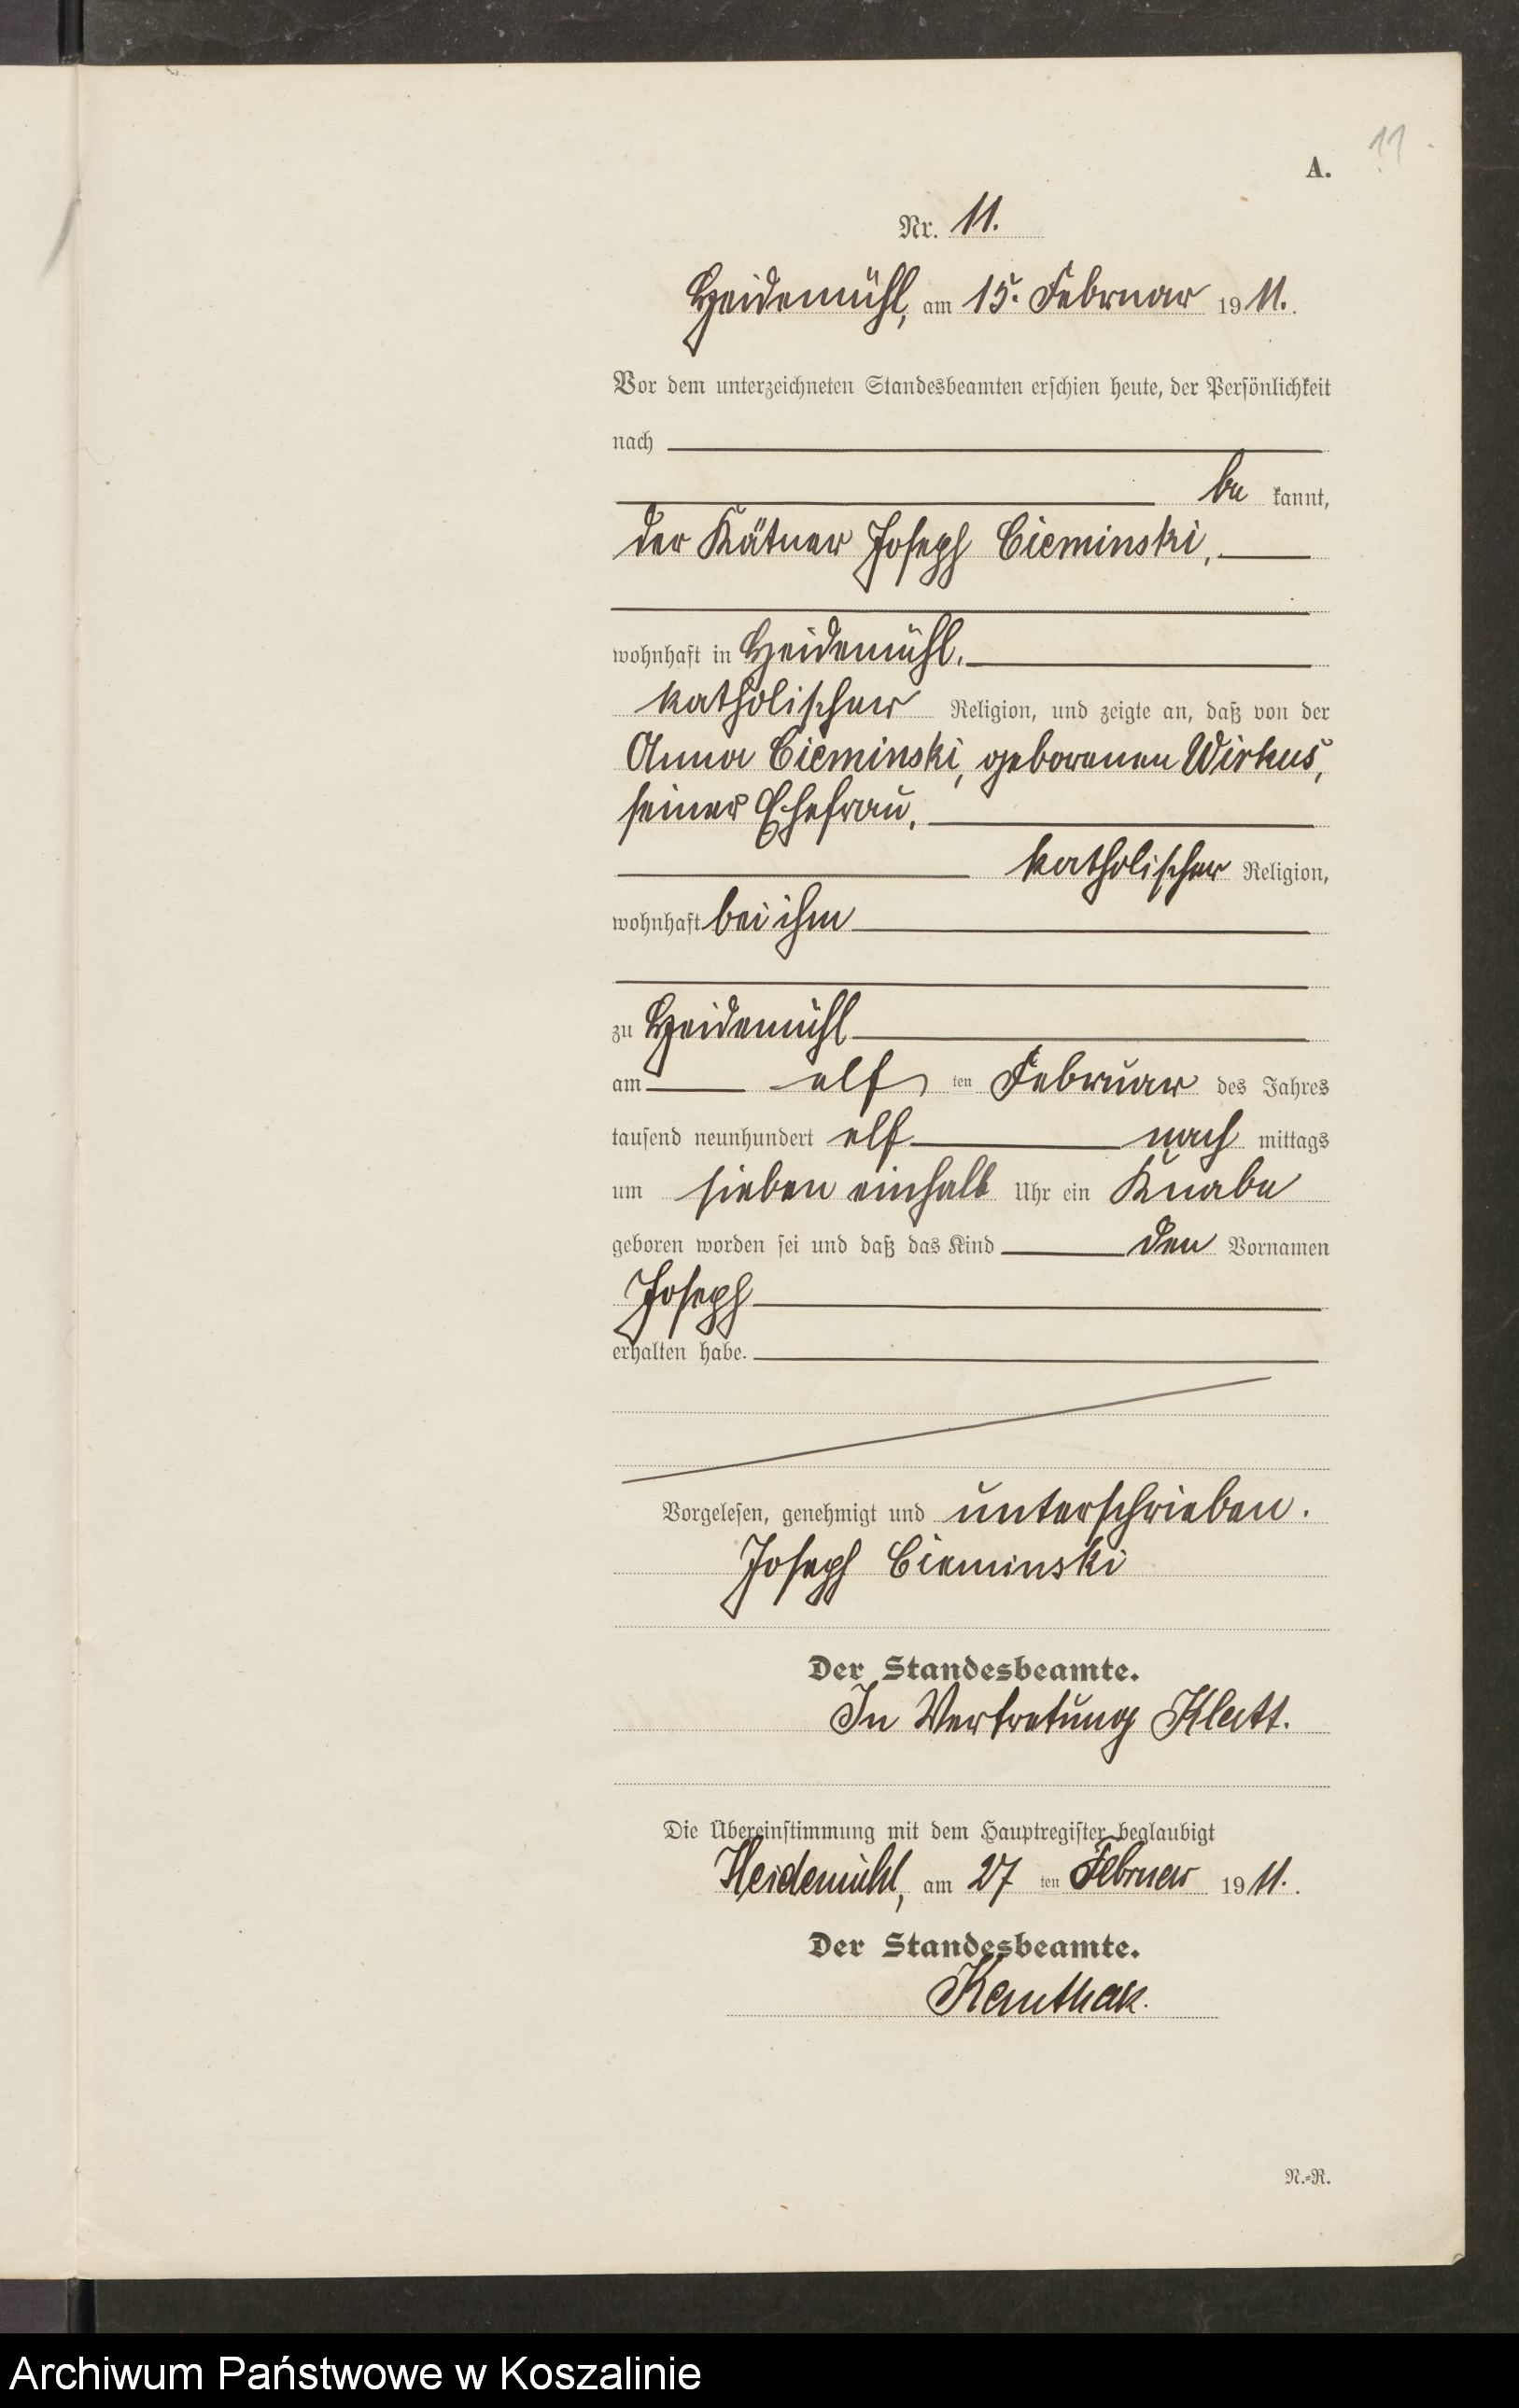 11.
A.
Nr. 11.
Heidemühl, am 15. Februar 1911.
Vor dem unterzeichneten Standesbeamten erschien heute, der Persönlichkeit
nach
be kannt,
der Kätner Joseph Cieminski,
wohnhaft in Heidemühl.
katholischer Religion, und zeigte an, daß von der
Anna Cieminski, geborenen Wirkus,
seiner Ehefrau,
katholischer Religion,
wohnhaft bei ihm
zu Heidemühl
am elf ten Februar des Jahres
tausend neunhundert elf nach mittags
um sieben einhalb Uhr ein Knabe
geboren worden sei und daß das Kind den Vornamen
Joseph
erhalten habe.
Vorgelesen, genehmigt und unterschrieben.
Joseph Cieminski
Der Standesbeamte.
In Vertretung Klatt.
Die Übereinstimmung mit dem Hauptregister beglaubigt
Heidemühl, am 27 ten Februar 1911.
Der Standesbeamte.
N.=R.
Archiwum Państwowe w Koszalinie